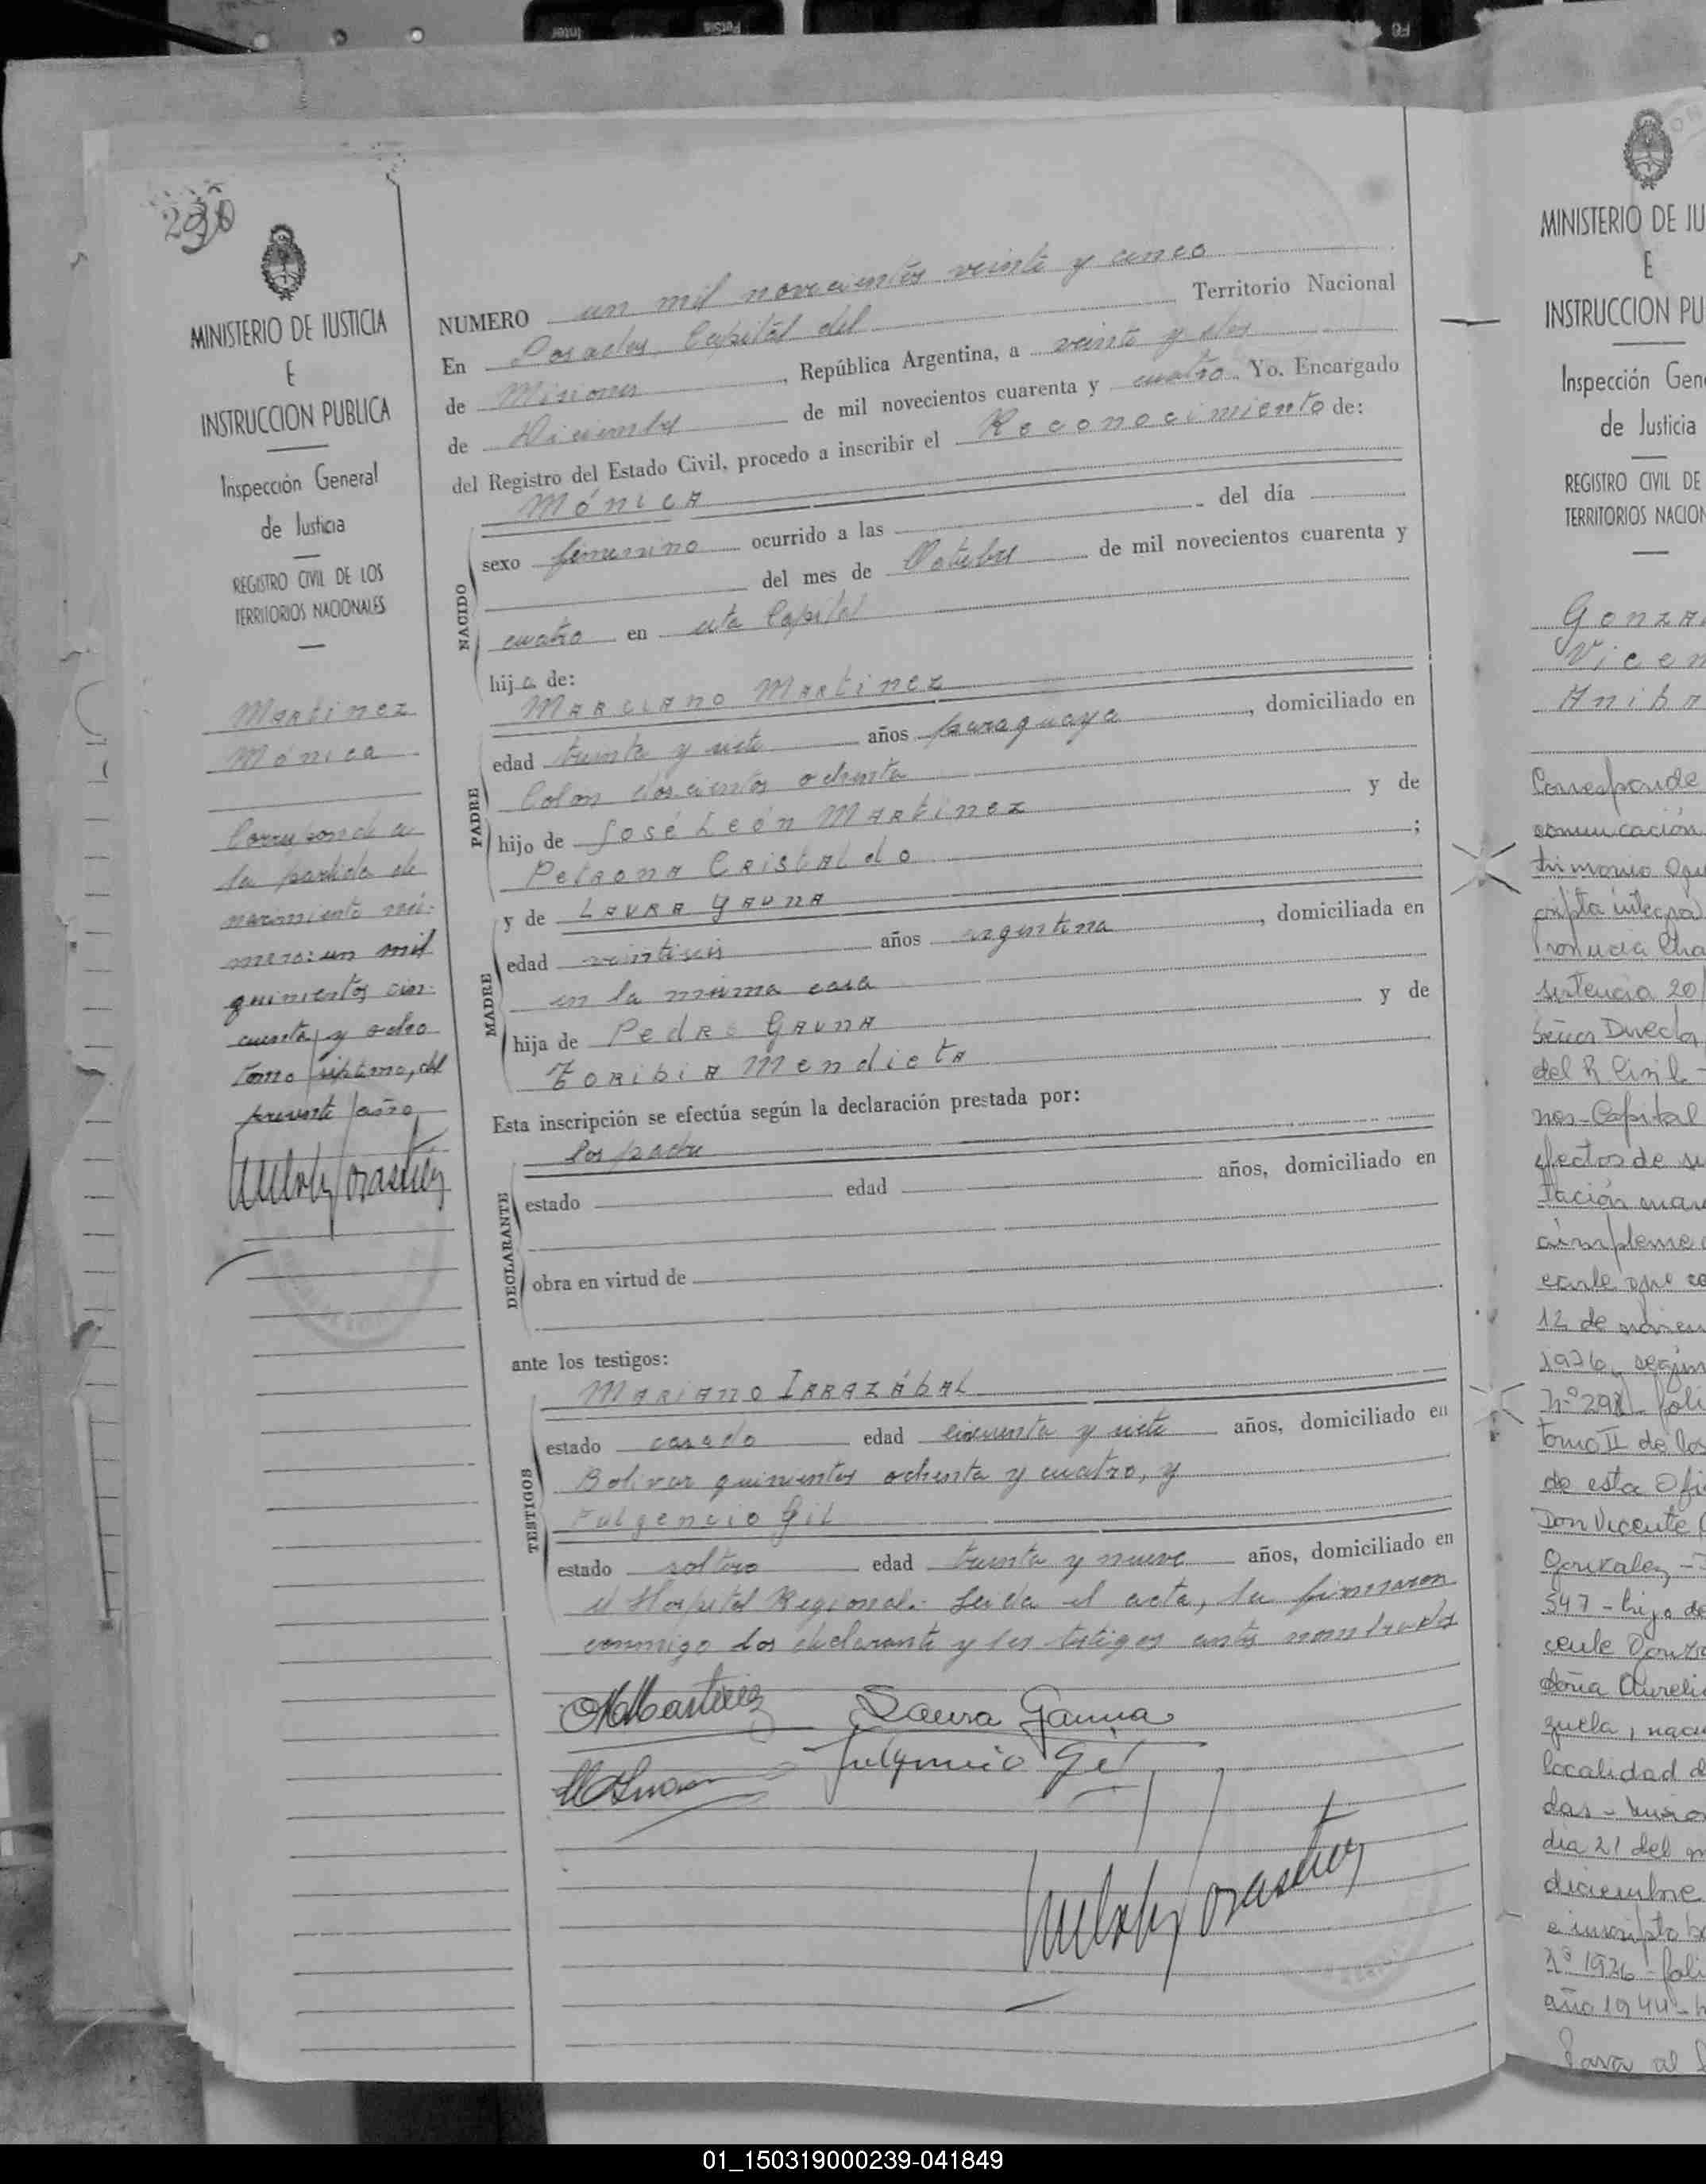 MINISTERIO DE JUSTICIA
E
INSTRUCCION PUBLICA
Inspección General
de Justicia
REGISTRO CIVIL DE LOS
TERRITORIOS NACIONALES
Martinez
Mónica
Corresponde a
la partida de
nacimiento nú-
mero: un mil
quinientos cin-
cuenta y ocho
tomo séptimo, del
presente año
NUMERO un mil novecientos veinte y cinco
En Posadas, Capital del Territorio Nacional
de Misiones, República Argentina, a veinte y dos
de Diciembre de mil novecientos cuarenta y cuatro. Yo. Encargado
del Registro del Estado Civil, procedo a inscribir el Reconocimiento de:
Mónica
NACIDO
sexo femenino ocurrido a las del día
del mes de Octubre de mil novecientos cuarenta y
cuatro en esta Capital
hija de:
PADRE
Marciano Martinez
edad treinta y siete años paraguayo, domiciliado en
Colon doscientos ochenta
hijo de José León Martinez y de
Petrona Cristaldo;
MADRE
y de Laura Gauna
edad veintiseis años argentina, domiciliada en
en la misma casa
hija de Pedro Gauna y de
Toribia Mendieta
Esta inscripción se efectúa según la declaración prestada por:
DECLARANTE
los padre
estado edad años, domiciliado en
obra en virtud de
ante los testigos:
TESTIGOS
Mariano Irrazábal
estado casado edad cincuenta y siete años, domiciliado en
Bolivar quinientos ochenta y cuatro, y
Fulgencio Gil
estado soltero edad treinta y nueve años, domiciliado en
el Hospital Regional.- Leida el acta, la firmaron
conmigo los declarante y los testigos antes nombrados
MMartinez Laura Gauna
Fulgencio Gil
MINISTERIO DE JU
E
INSTRUCCION PU
Inspección Gen
de Justicia
REGISTRO CIVIL DE
TERRITORIOS NACION
Gonza
Vicen
Aniba
Corresponde
comunicación
trimonio
cripta integra
Provincia Cha
sentencia 20
Señor Director
del R Civil -
nos-Capital
efectos de su
tación
12 de
1976, según
nº 298 foli
tomo II de los
de esta Ofi
Don Vicente
Gonzalez -
547 - hijo de
cente Gonza
doña Aureli
zuela, naci
localidad d
das - Misio
dia 21 del m
diciembre
e inscripto ba
nº 1926 - foli
año 1944 -
Pasa al
01_150319000239-041849